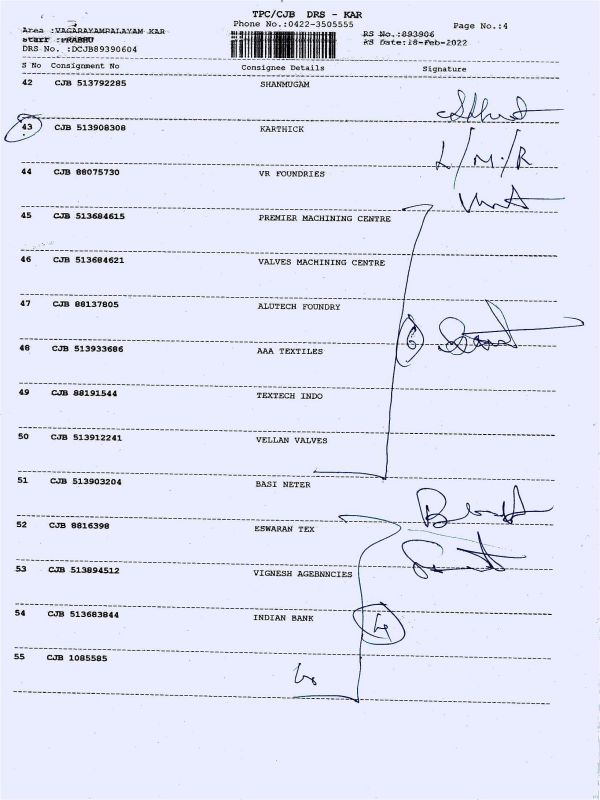 TPC/CJB DRS - KAR
Phone No.:0422-3505555
Page No.:4
Area :VAGARAYAMPALAYAM KAR
Staff :PRABHU
DRS No. :DCJB89390604
RS No.:893906
RS Date:18-Feb-2022
S No Consignment No Consignee Details Signature
42 CJB 513792285 SHANMUGAM
43 CJB 513908308 KARTHICK
L/M/R
44 CJB 88075730 VR FOUNDRIES
45 CJB 513684615 PREMIER MACHINING CENTRE
46 CJB 513684621 VALVES MACHINING CENTRE
47 CJB 88137805 ALUTECH FOUNDRY
6
48 CJB 513933686 AAA TEXTILES
49 CJB 88191544 TEXTECH INDO
50 CJB 513912241 VELLAN VALVES
51 CJB 513903204 BASI NETER
52 CJB 8816398 ESWARAN TEX
53 CJB 513894512 VIGNESH AGEBNNCIES
54 CJB 513683844 INDIAN BANK
55 CJB 1085585